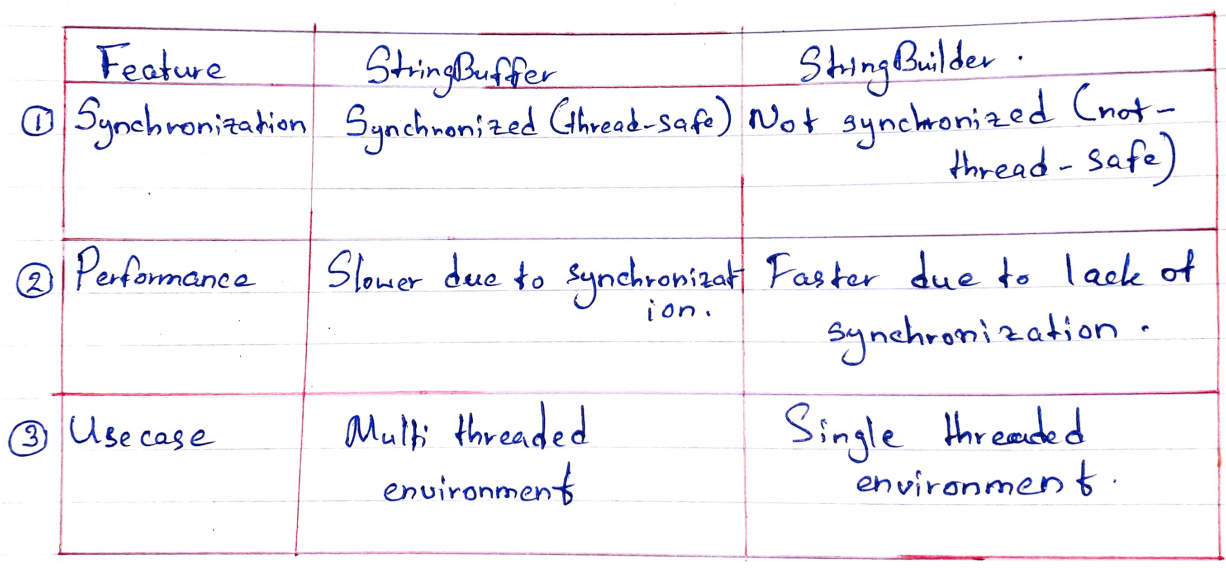 Feature StringBuffer StringBuilder .
① Synchronization Synchronized (thread-safe) Not synchronized (not-
thread-safe)
② Performance Slower due to synchronizat Faster due to lack of
ion. synchronization.
③ Usecase Multi threaded Single threaded
environment environment.